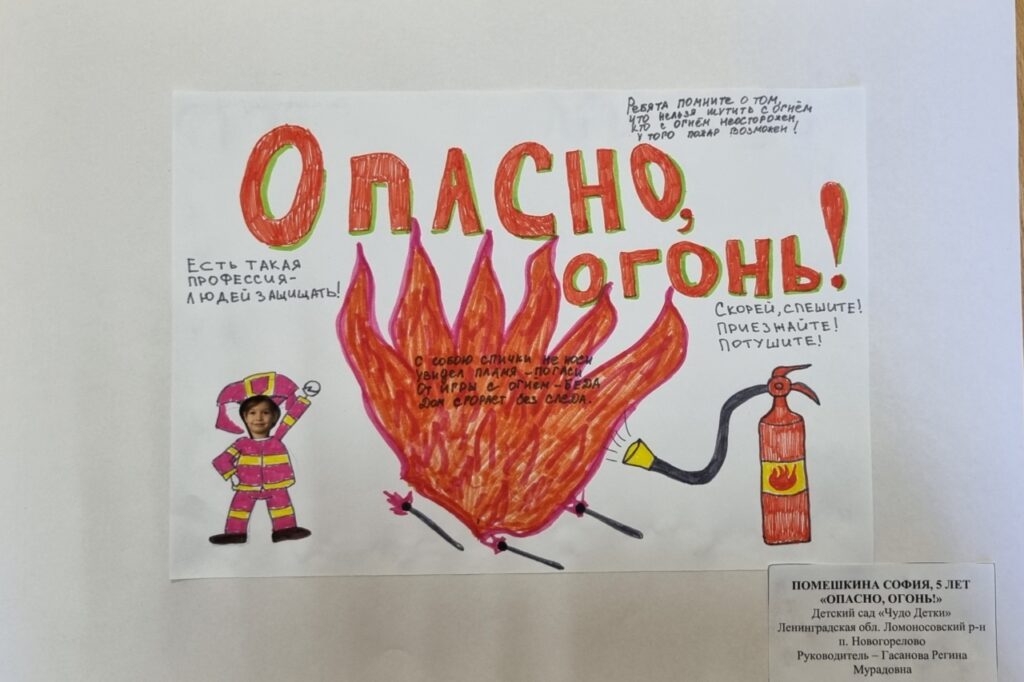 Ребята помните о том,
что нельзя шутить с огнём
кто с огнём неосторожен,
у того пожар возможен!
Опасно,
огонь!
Есть такая
профессия-
людей защищать!
Скорей, спешите!
Приезжайте!
Потушите!
С собою спички не носи
Увидел пламя - погаси
От игры с огнем - беда
Дом сгорает без следа.
ПОМЕШКИНА СОФИЯ, 5 ЛЕТ
«ОПАСНО, ОГОНЬ!»
Детский сад «Чудо Детки»
Ленинградская обл. Ломоносовский р-н
п. Новогорелово
Руководитель – Гасанова Регина
Мурадовна